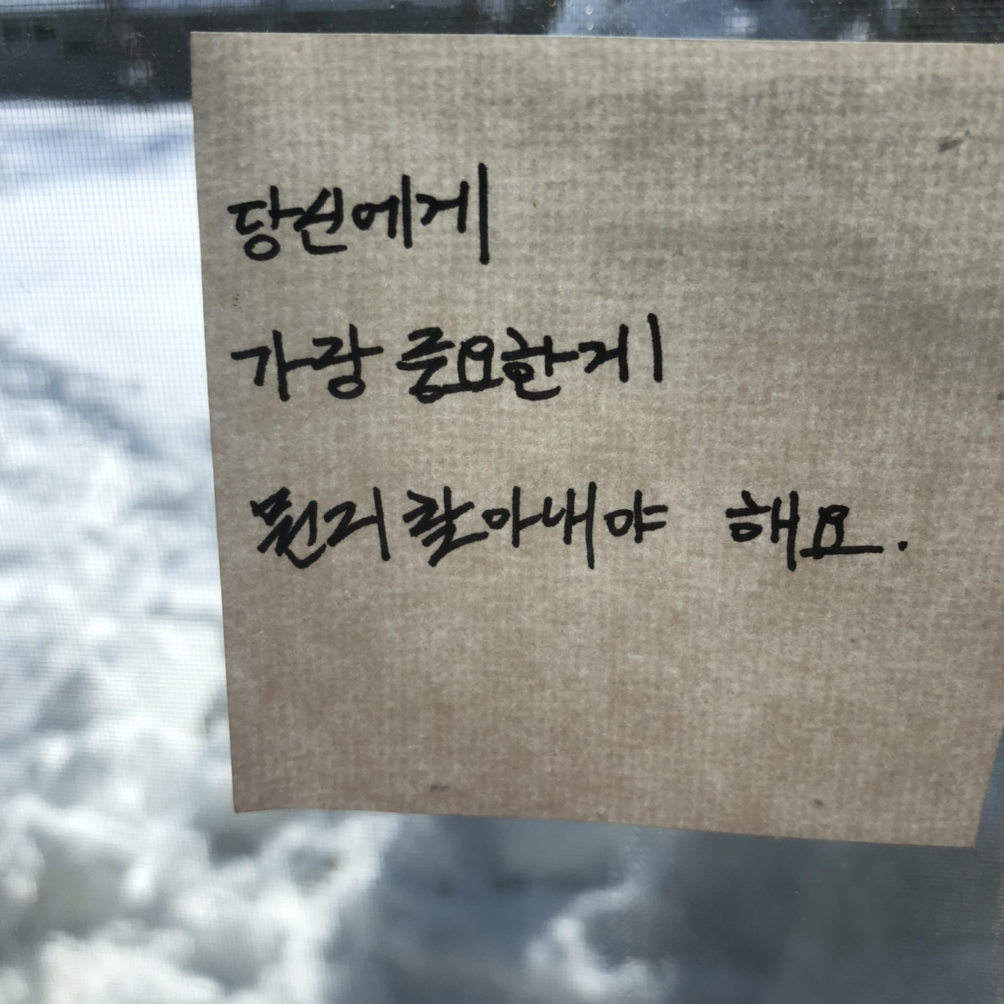 당신에게
가장 중요한게
뭔지 찾아내야 해요.